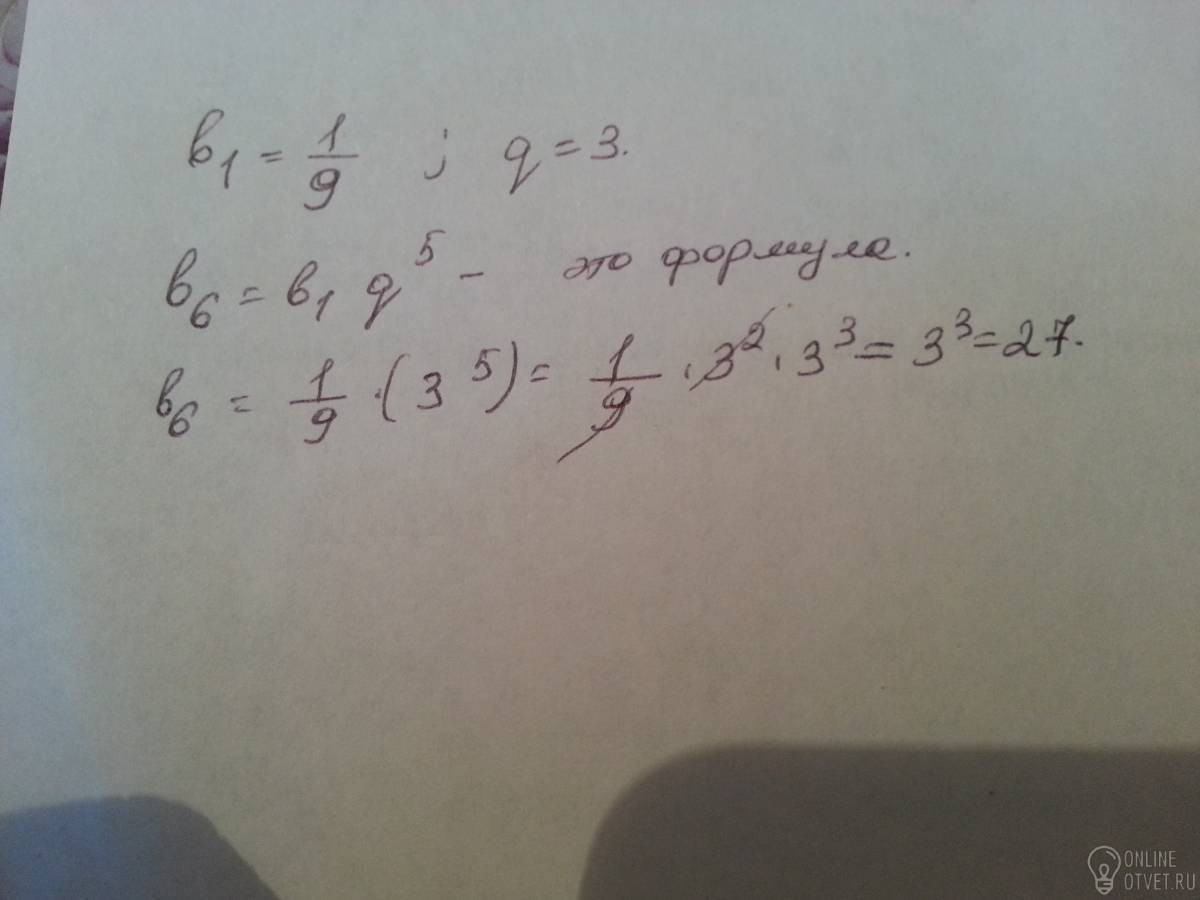 в₁ = 1/9 ; q = 3.
в₆ = в₁ q⁵ - это формула.
в₆ = 1/9 · (3⁵) = 1/9 · 3² · 3³ = 3³ = 27.
ONLINE
OTVET.RU